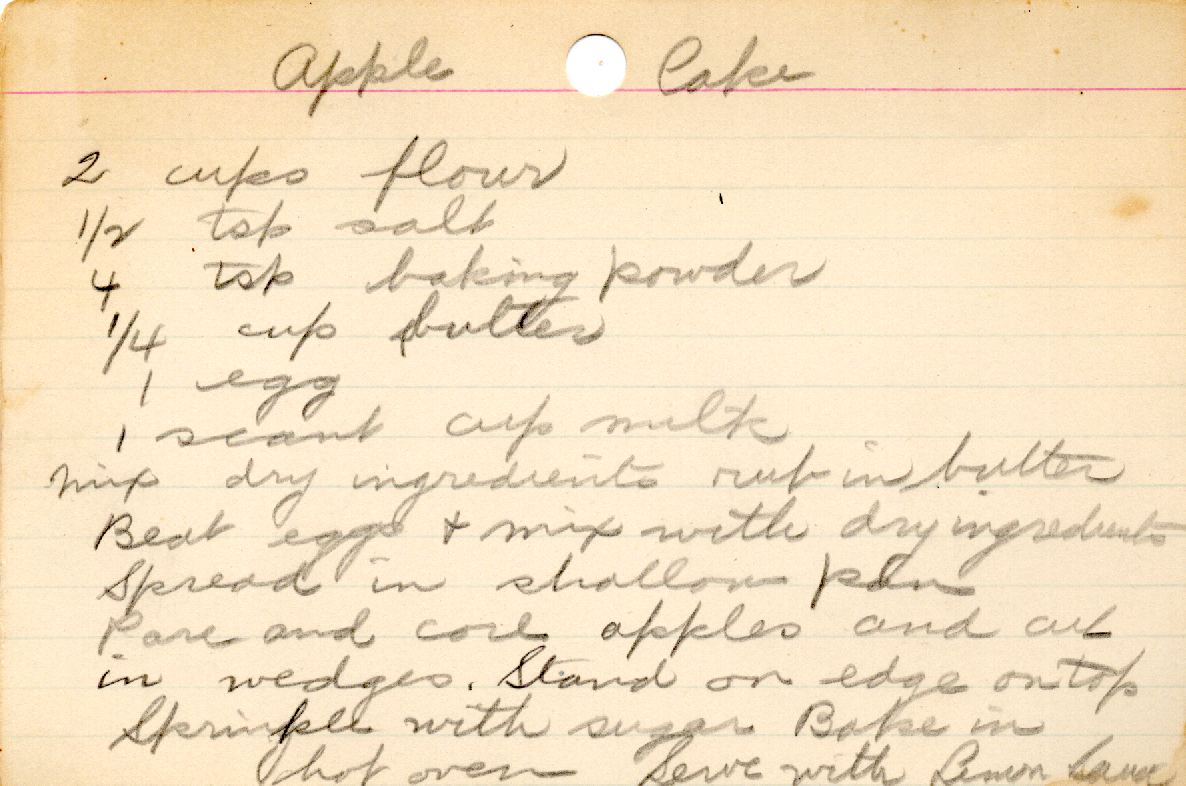 Apple Cake
2 cups flour
1/2 tsp salt
4 tsp baking powder
1/4 cup butter
1 egg
1 scant cup milk
Mix dry ingredients rub in butter
Beat eggs + mix with dry ingredients
Spread in shallow pan
Pare and core apples and cut
in wedges. Stand on edge on top
Sprinkle with sugar Bake in
hot oven Serve with Lemon Sauce